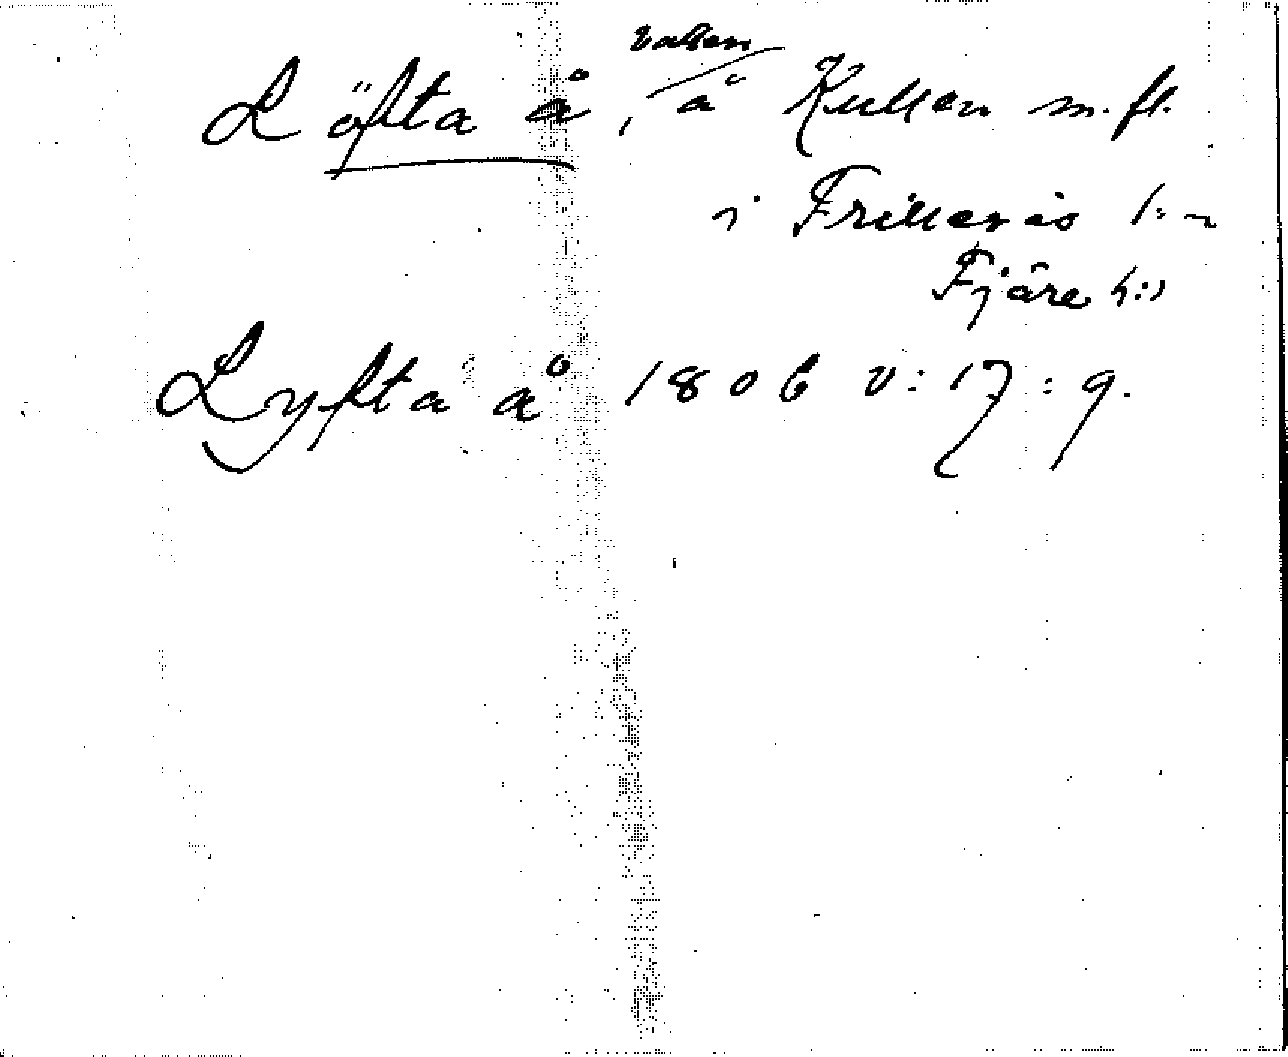 vatten
Löfta å, å Kullen m.fl.
i Frillesås
Fjäre h:d
Lyfta å 1806 v: 17: 9.